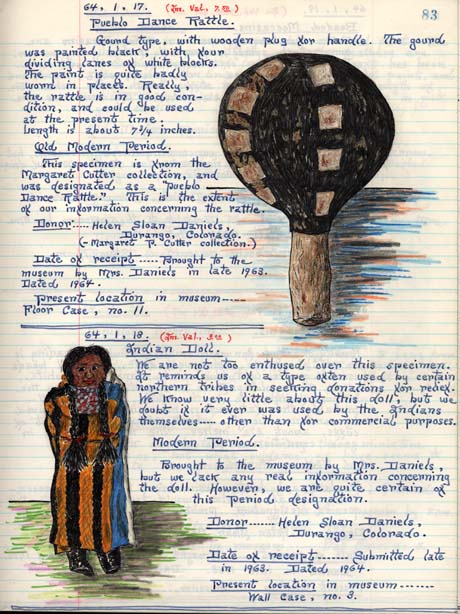 83
64, 1, 17. Val.,
Pueblo Dance Rattle.
Gourd type, with wooden plug for handle. The gourd
was painted black, with four
dividing lanes of white blocks.
The paint is quite badly
worn in places. Really,
the rattle is in good con-
dition, and could be used
at the present time.
Length is about 7 3/4 inches.
Old Modern Period.
This specimen is from the
Margaret Cutter collection, and
was designated as a "Pueblo
Dance Rattle." This is the extent
of our information concerning the rattle.
Donor---- Helen Sloan Daniels,
Durango, Colorado.
(-Margaret P. Cutter collection.-)
Date of receipt----- Brought to the
museum by Mrs. Daniels in late 1963.
Dated 1964.
Present location in museum-----
Floor Case, no. 11.
64, 1, 18. Val.,
Indian Doll.
We are not too enthused over this specimen.
It reminds us of a type often used by certain
northern tribes in seeking donations for relief.
We know very little about this doll, but we
doubt if it ever was used by the Indians
themselves---- other than for commercial purposes.
Modern Period.
Brought to the museum by Mrs. Daniels,
but we lack any real information concerning
the doll. However, we are quite certain of
this Period designation.
Donor------ Helen Sloan Daniels,
Durango, Colorado.
Date of receipt----- Submitted late
in 1963. Dated 1964.
Present location in museum-------
Wall Case, no. 3.